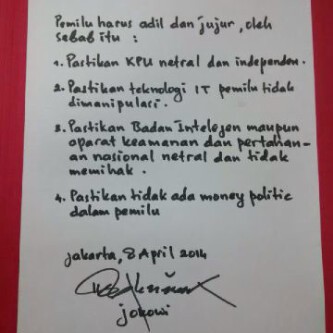 Pemilu harus adil dan jujur, oleh
sebab itu :
1. Pastikan KPU netral dan independen.
2. Pastikan teknologi IT pemilu tidak
dimanipulasi.
3. Pastikan Badan Intelejen maupun
aparat keamanan dan pertahan-
an nasional netral dan tidak
memihak.
4. Pastikan tidak ada money politic
dalam pemilu
jakarta, 8 April 2014
jokowi